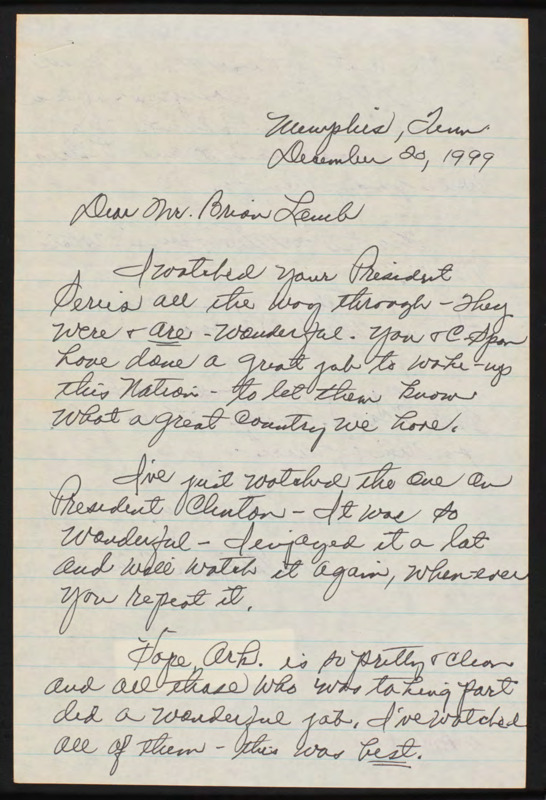 Memphis, Tenn.
December 20, 1999
Dear Mr. Brian Lamb
I watched your President
Series all the way through - They
were & are - wonderful. You & C-Span
have done a great job to wake-up
this Nation - to let them know
what a great Country we have.
I've just watched the one on
President Clinton - It was so
wonderful - I enjoyed it a lot
and will watch it again, when-ever
you repeat it.
Hope, Ark. is so pretty & clean
and all those who was taking part
did a wonderful job. I've watched
all of them - this was best.